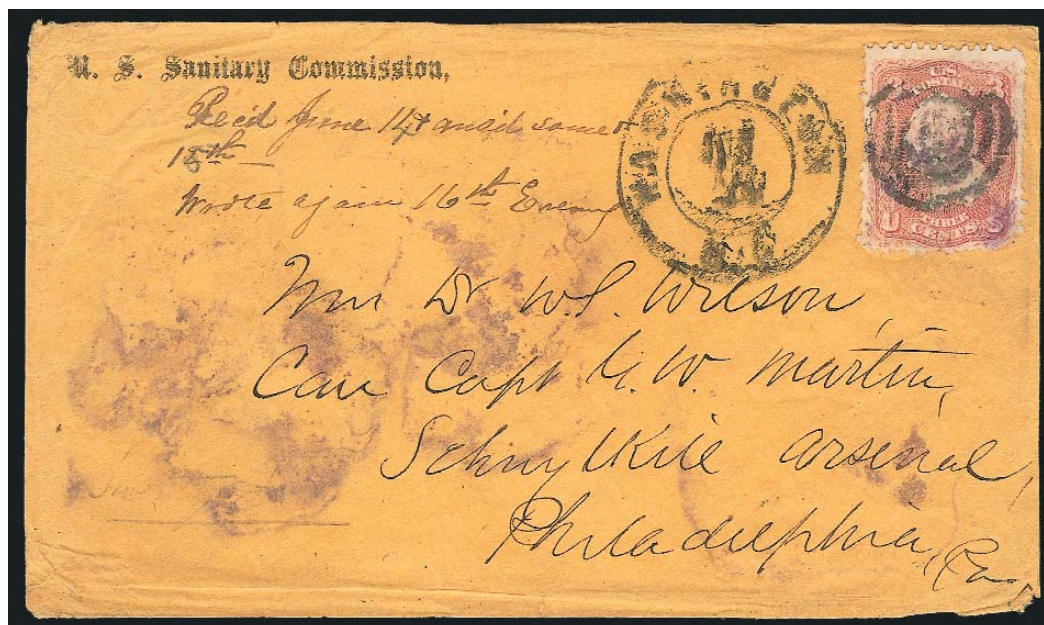 U. S. Sanitary Commission,
Rec'd June 14 & ansd same
15th
Wrote again 16th Eveng
WASHINGTON
U.S. POSTAGE
THREE CENTS
Dr W. S. Wilson,
Care Capt G. W. Martin,
Schuylkill Arsenal,
Philadelphia, Pa